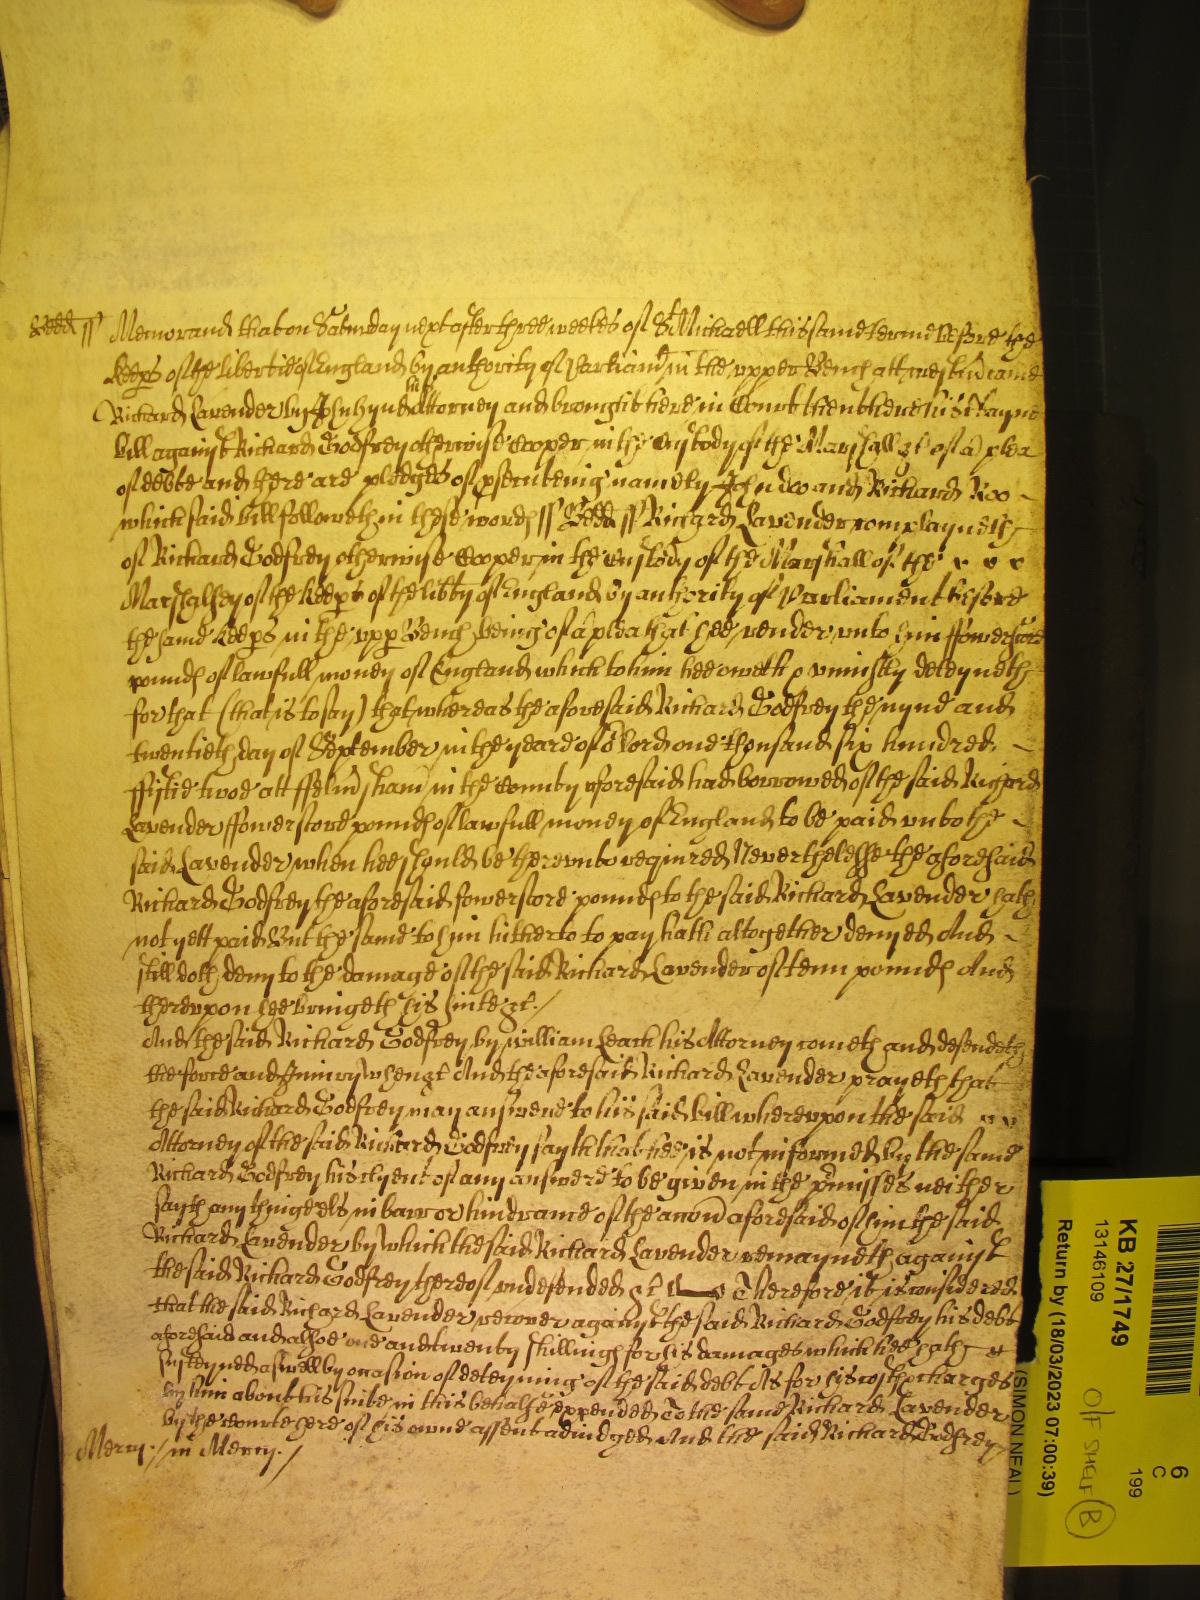 Bedd ss Memorand that on Saturday next after three weekes of St Michaell this same terme before the
keeps of the libertie of England by authority of Parliamt in the upper Bench att Westm came
Richard Lavender by John hynd his Attorney and brought here in Court then there his certayne
bill against Richard Godfrey otherwise Cooper in the Custody of the Marshall &c of a plea
of debte and there are pledges of psecuteing namely John doo and Richard Roo
which said bill followeth in these words ss Bedd ss Richard Lavender complayneth
of Richard Godfrey otherwise Cooper in the Custody of the Marshall of the
Marshalsey of the keeps of the libty of England by authority of Parliament before
the same keeps in the upp Bench being of a plea that hee render unto him ffowerscore
pounds of lawfull money of England which to him hee oweth & uniustly deteyneth
for that (that is to say) that whereas the aforesaid Richard Godfrey the nyne and
twentieth day of September in the yeare of or lord one thousand six hundred
ffiftie twoe att ffelmsham in the County aforesaid had borrowed of the said Richard
Lavender ffowerscore pounds of lawfull money of England to be paid unto the
said Lavender when hee should be thereunto required Neverthelesse the aforesaid
Richard Godfrey the aforesaid fowerscore pounds to the said Richard Lavender hath
not yett paid But the same to him hitherto to pay hath altogether denyed And
still doth deny to the damage of the said Richard Lavender of tenn pounds And
thereupon hee bringeth his suite &c./
And the said Richard Godfrey by William Leach his Attorney cometh and defendeth
the force and Iniury when &c And the aforesaid Richard Lavender prayeth that
the said Richard Godfrey may answere to his said bill whereupon the said
Attorney of the said Richard Godfrey sayth that hee is not informed by the same
Richard Godfrey his clyent of any answere to be given in the pmisses neither
sayth any thinge els in barr or hindrance of the accon aforesaid of him the said
Richard Lavender by which the said Richard Lavender remayneth against
the said Richard Godfrey thereof undefended &c Therefore it is considered
that the said Richard Lavender recover against the said Richard Godfrey his debt
aforesaid and alsoe one and twenty shillings for his damages which hee hath
susteyned aswell by occasion of deteyning of the said debt As for his costs & charges
by him about his suite in this behalfe expended To the same Richard Lavender
by the courte here of his owne assent adiudged And the said Richard Godfrey
Mercy./ in Mercy./
KB 27/1749
13146109
Return by (18/03/2023 07:00:39)
(SIMON NEAL)
6
C
199
O/F SHELF B